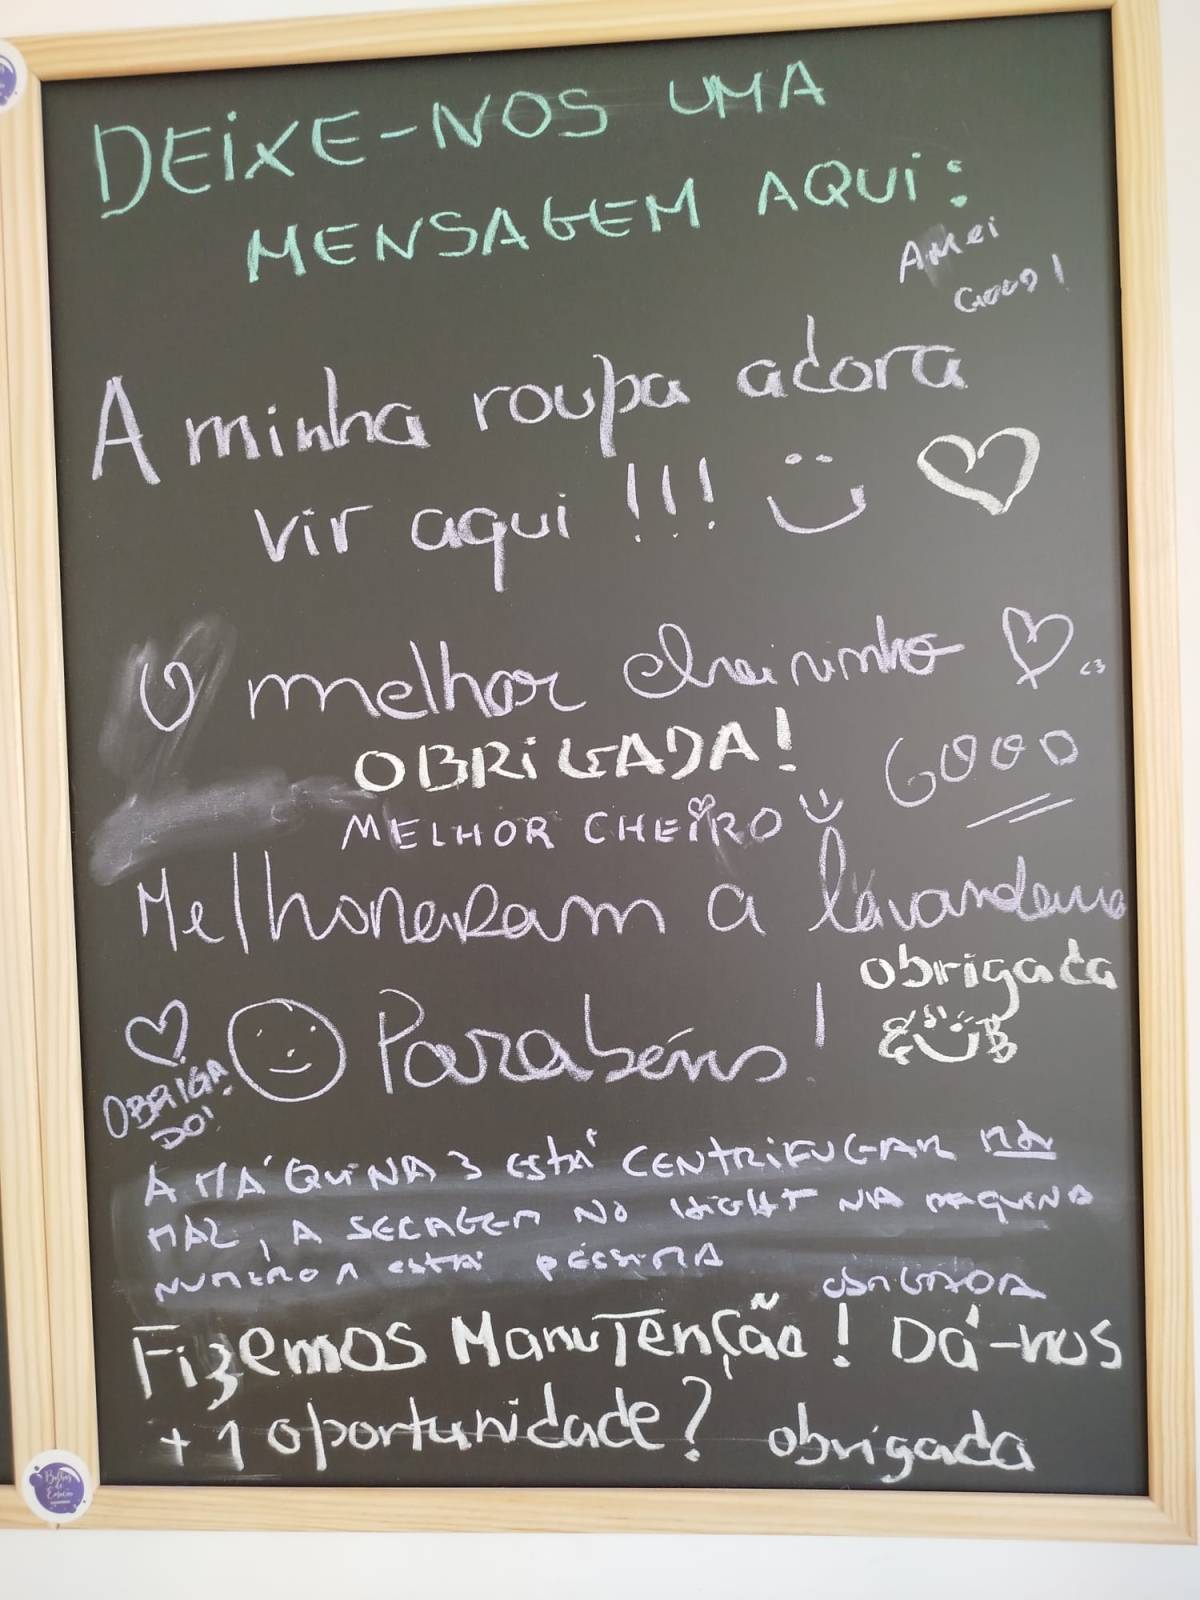 DEIXE-NOS UMA
MENSAGEM AQUI:
AMei
GOOD!
A minha roupa adora
vir aqui !!! :)
O melhor cheirinho
<3
OBRIGADA!
GOOD
MELHOR CHEIRO
Melhoraram a lavandaria
obrigada
Parabéns!
OBRIGA
DO!
A MÁQUINA 3 ESTÁ CENTRIFUGAR
MAL, A SECAGEM NO HIGHT NA MAQUINA
NUMERO 1 ESTÁ PÉSSIMA
OBRIGADA
Fizemos Manutenção! Dá-nos
+1 oportunidade? obrigada
Bolhas
de